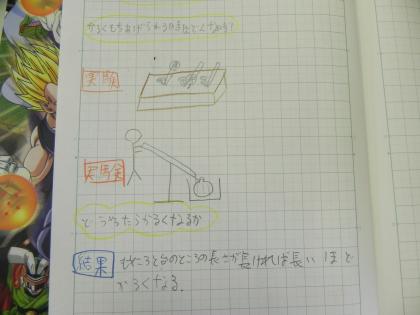 かるくもちあげられるのはどんなとき?
実験
実験
どうやったらかるくなるか
結果 もつところと台のところの長さが長ければ長いほど
かるくなる。